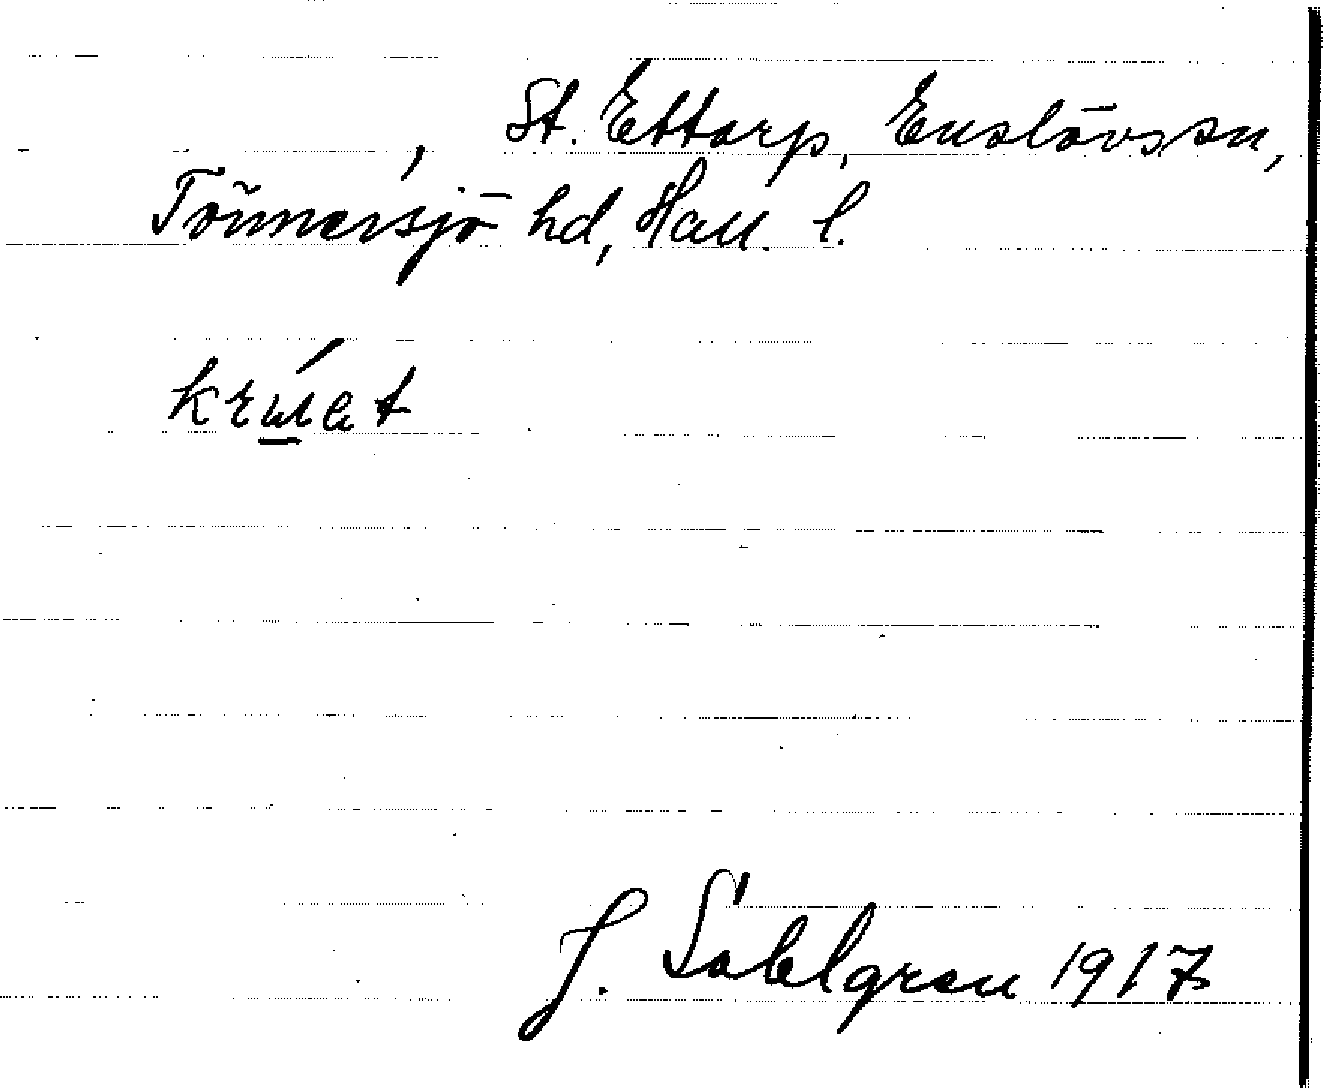 St. Ettarp, Enslövs sn,
Tönnersjö hd, Hall. l.
J. Sahlgren 1917